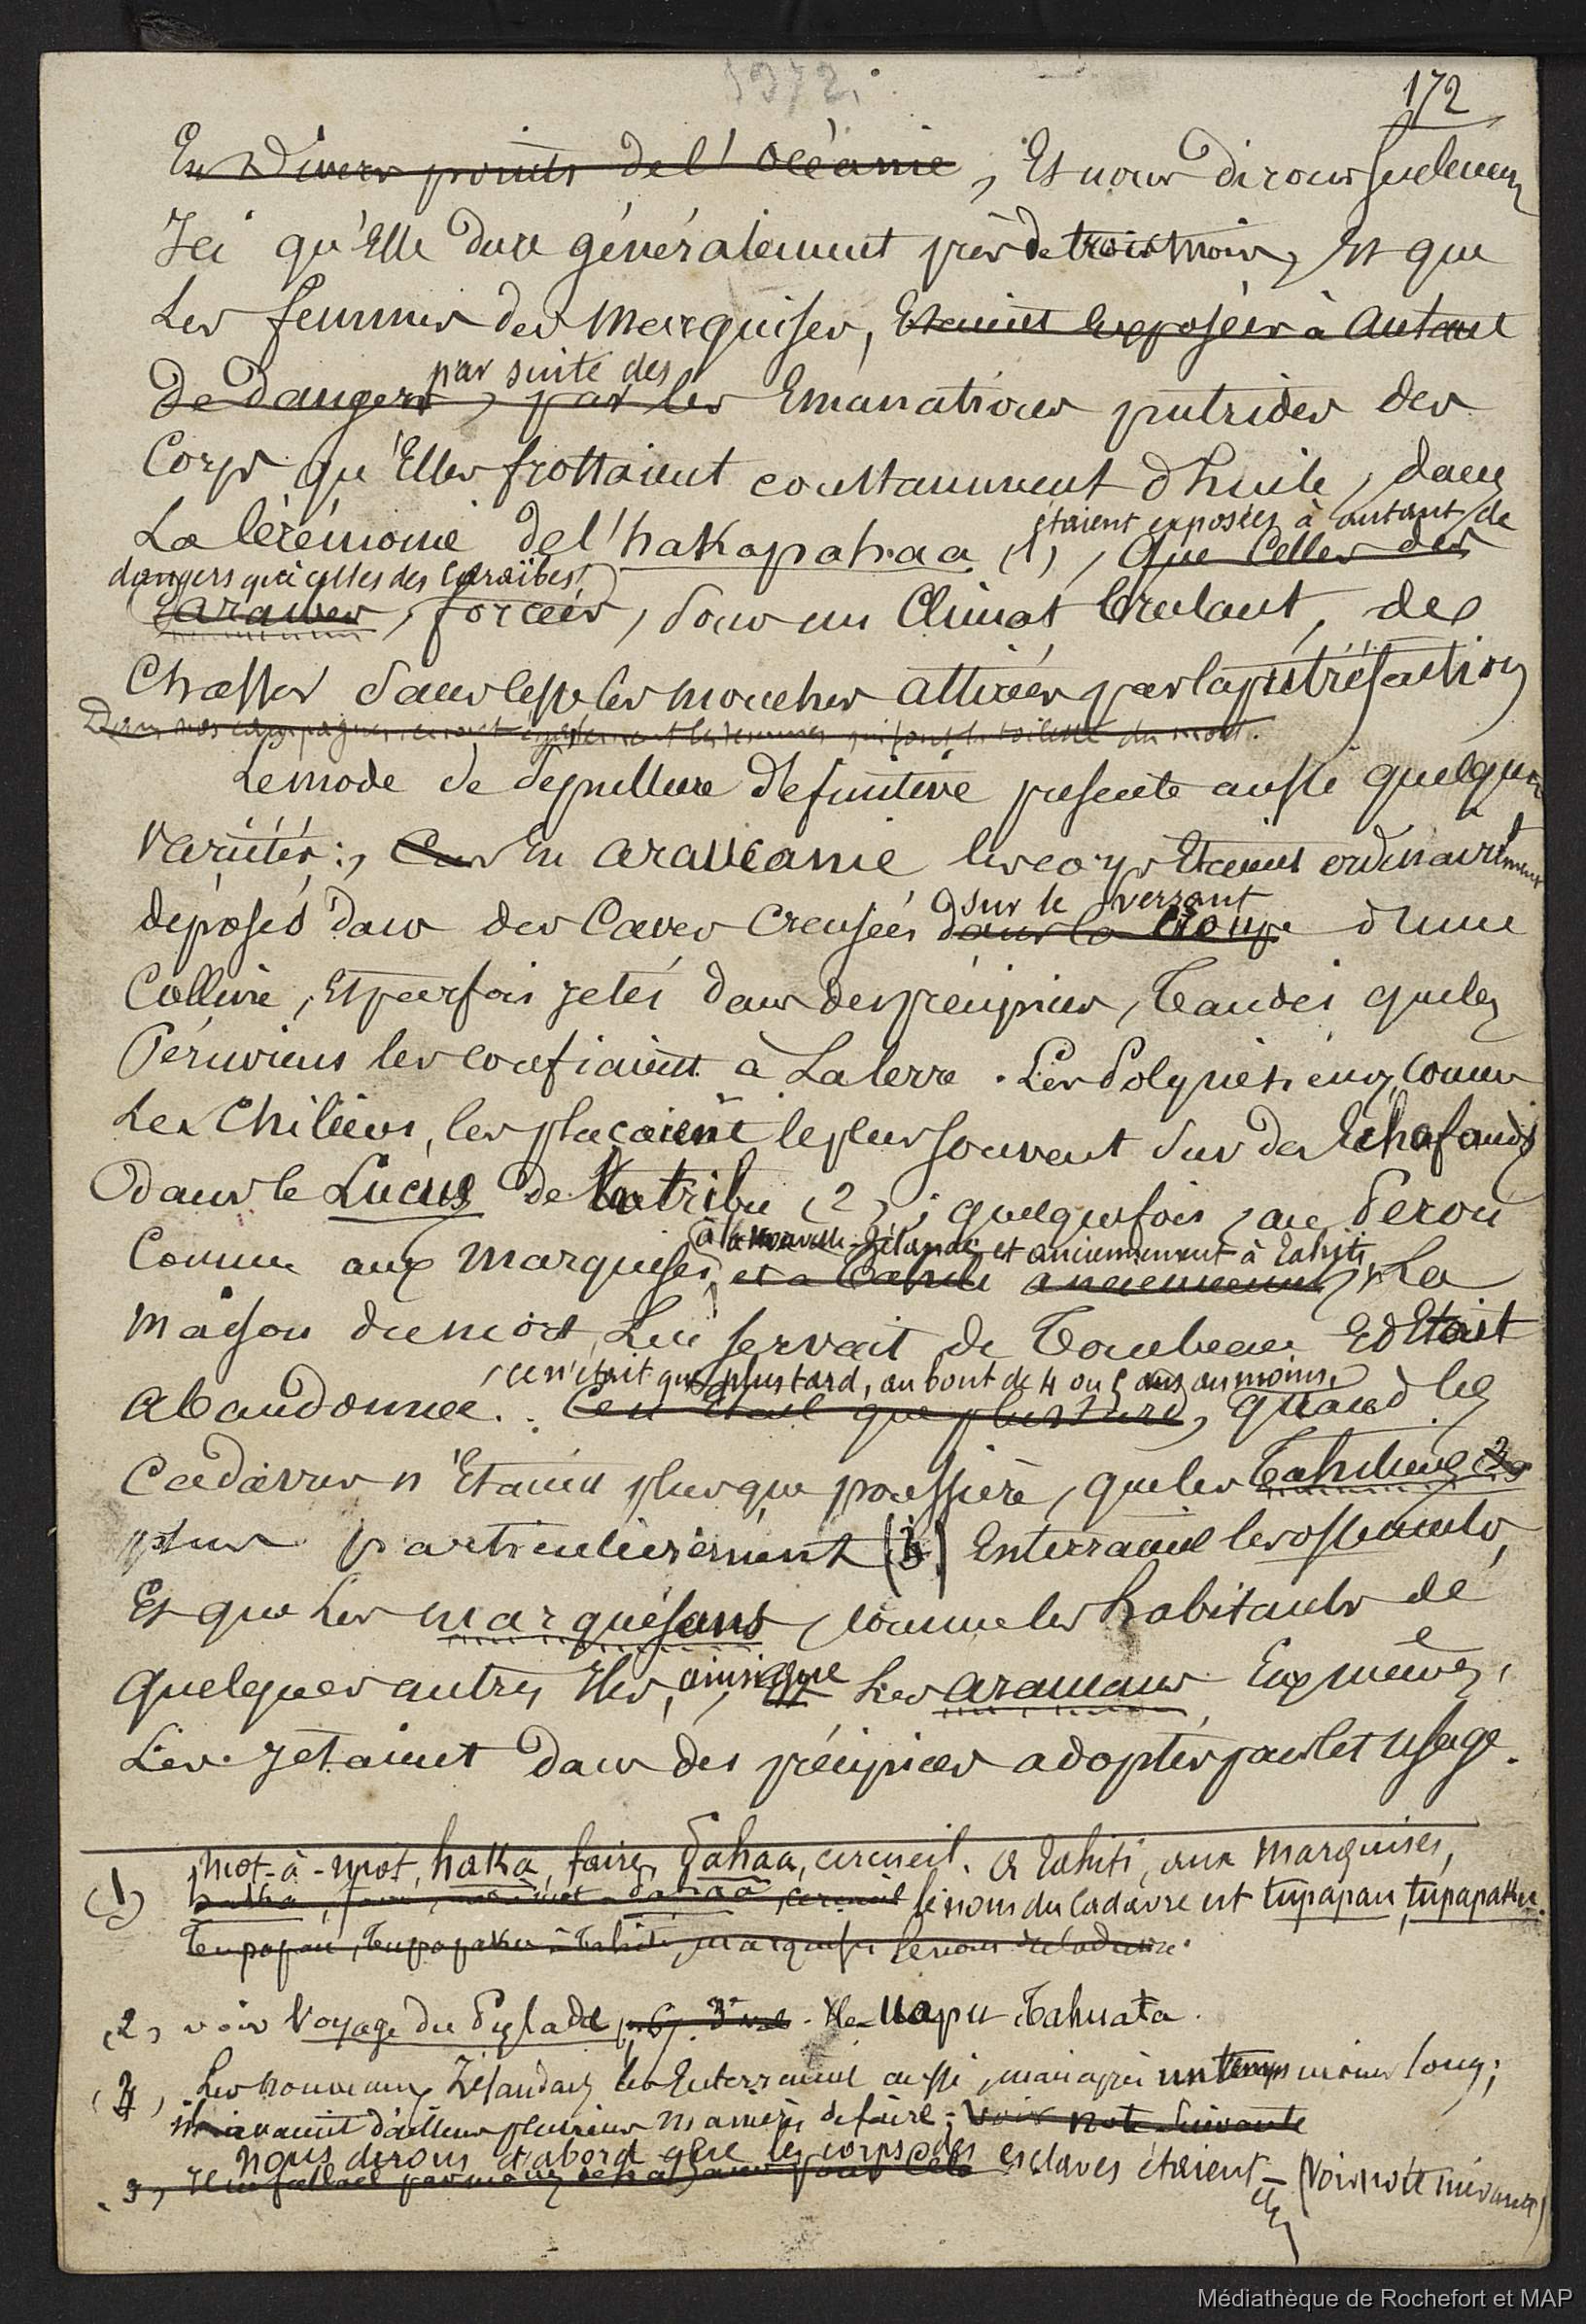 1972.
172
En divers points de l'océanie, Et nous dirons seulement
Ici qu'Elle dure généralement près de trois mois, Et que
Les femmes des Marquises, Etaient exposées à Autant
par suite des
de dangers, par les Emanations putrides des
Corps qu'Elles frottaient constamment d'huile, dans
étaient exposées à autant de
La Cérémonie de l'hakapahaa (1), que Celles des
dangers que celles des Caraïbes
Caraibes, forcées, sous un Climat brulant, de
Chasser sans cesse les mouches attirées par la putréfaction
Dans nos campagnes, ce sont également les femmes qui font la toilette du mort.
Le mode de Sépulture définitive présente aussi quelques
variétés :, Car En araucanie les corps Etaient ordinairement
sur le versant
déposés dans des Caves Creusées dans la croupe d'une
Colline, Et parfois jetés dans des précipices, Tandis que les
Péruviens les confiaient à La terre. Les Polynésiens, comme
Les Chiliens, les plaçaient le plus souvent sur des Echafauds
dans le Lucus de la tribu (2) ; quelquefois, au Pérou
à la nouvelle-Zélande et anciennement à Tahiti,
Comme aux Marquises, et à Tahiti anciennement, La
maison du mort, Lui servait de Tombeau Et Etait
ce n'était que plus tard, au bout de 4 ou 5 ans au moins,
Abandonnée. Ce n'était que plus tard, quand les
Cadavres n'Etaient plus que poussière, que les Tahitiens
plus particulièrement (3) Enterraient les ossements,
Et que Les marquésans, comme les habitants de
quelques autres Iles, ainsi que Les araucans Eux mêmes,
Les jetaient dans des précipices adoptés par cet usage.
(1) mot-à-mot, haka, faire, Pahaa, cercueil. A Tahiti, aux Marquises,
haka, faire, Pahaa, cercueil le nom du Cadavre est tupapau, tupapaku.
Tupapau, Tupapaku à Tahiti, marquises le nom du Cadavre.
(2) voir Voyage du Pylade p. 67. 3e vol. Ile Uapu Tahuata.
(3) Les nouveaux Zélandais les Enterraient aussi, mais après un temps moins long;
ils avaient d'ailleurs plusieurs manières de faire; Voir note Suivante
nous dirons d'abord que les corps des esclaves étaient - (Voir note suivante)
3, Il ne fallait pas moins de
Médiathèque de Rochefort et MAP